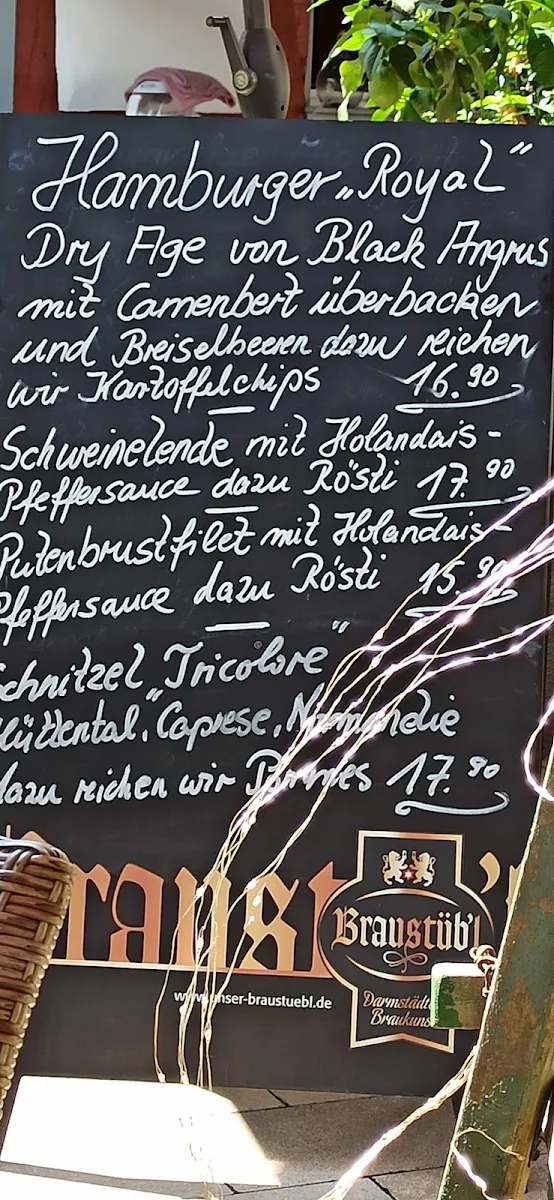 Hamburger „Royal"
Dry Age von Black Angus
mit Camenbert überbacken
und Breiselbeeren dazu reichen
wir Kartoffelchips 16.90
Schweinelende mit Holandais-
Pfeffersauce dazu Rösti 17.90
Putenbrustfilet mit Holandais-
Pfeffersauce dazu Rösti 15.90
Schnitzel „Tricolore"
Hüttental, Caprese, Normandie
dazu reichen wir Pommes 17.90
Braustüb'l
Braustüb'l
www.unser-braustuebl.de
Darmstädter
Braukunst